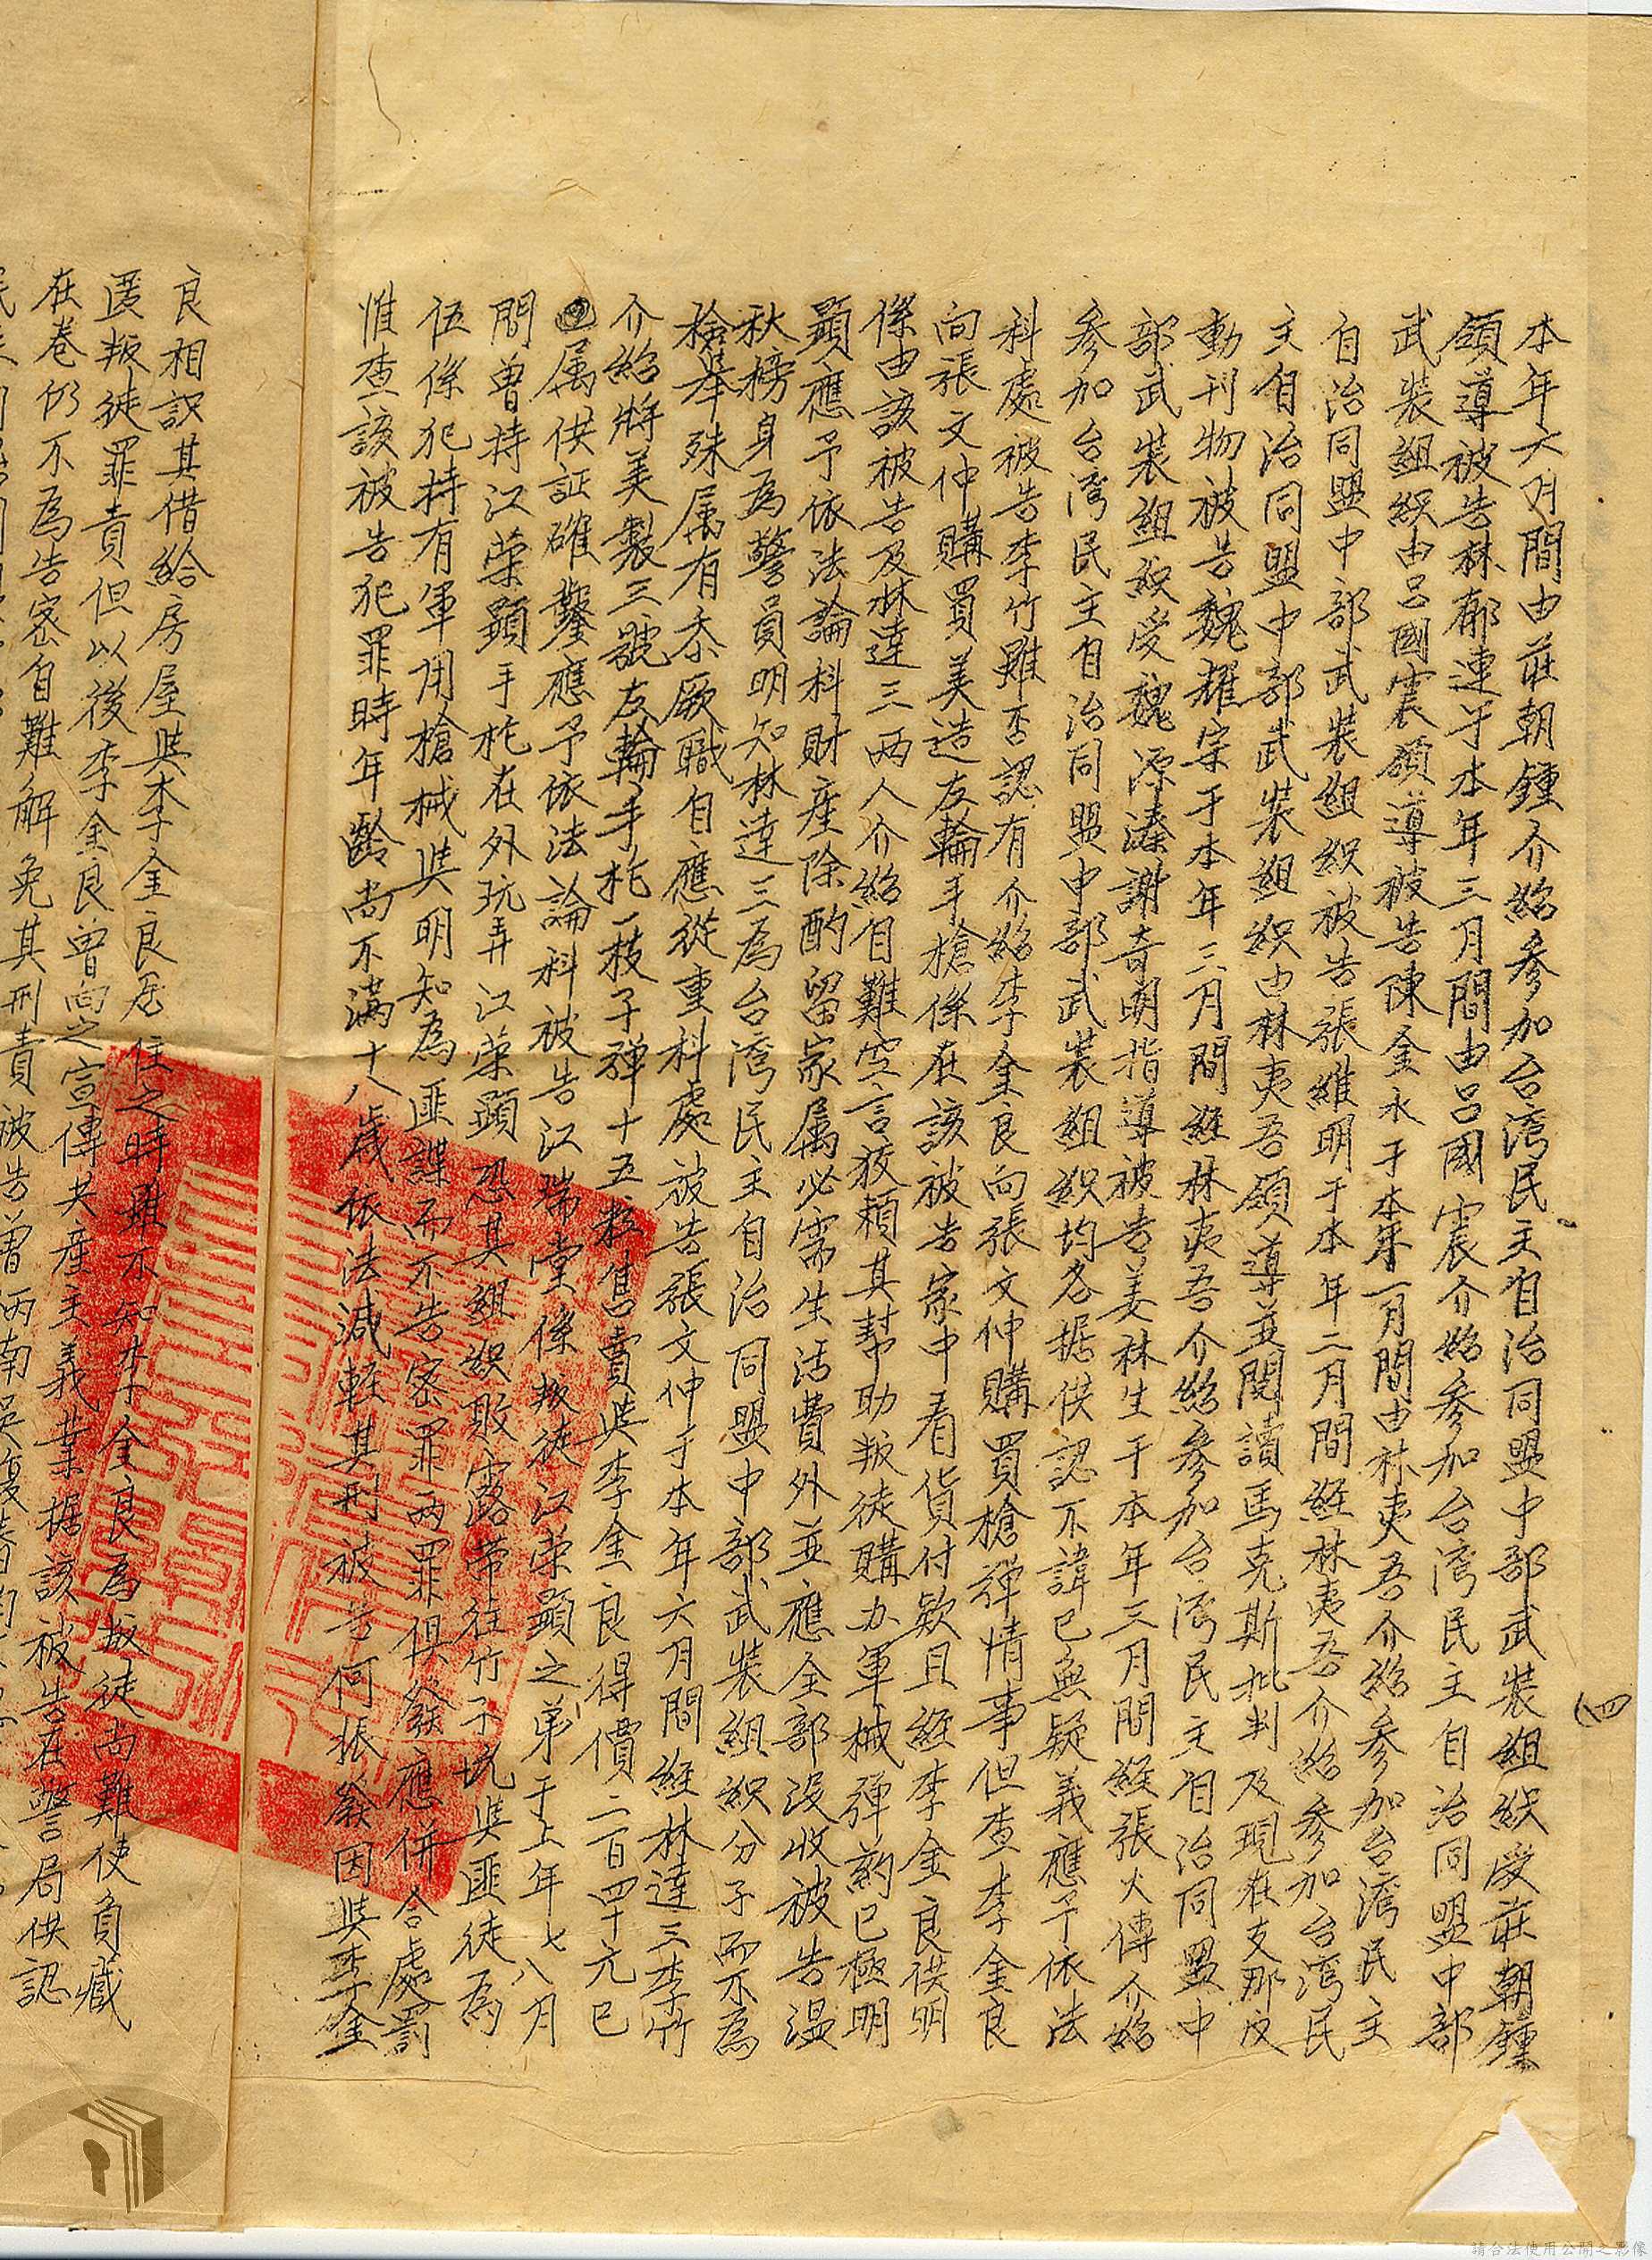 (四
本年六月間由莊朝鍾介紹參加台湾民主自治同盟中部武裝組織受莊朝鍾
領導被告林郁連于本年三月間由呂國震介紹參加台湾民主自治同盟中部
武裝組織由呂國震領導被告陳金水于本年一月間由林夷吾介紹參加台湾民主
自治同盟中部武裝組織被告張維明于本年二月間經林夷吾介紹參加台湾民
主自治同盟中部武裝組織由林夷吾領導並閱讀馬克斯批判及現在支那反
動刊物被告魏耀宗于本年三月間經林夷吾介紹參加台湾民主自治同盟中
部武裝組織受魏源溱謝奇明指導被告姜林生于本年三月間經張火傳介紹
參加台湾民主自治同盟中部武裝組織均各据供認不諱已無疑義應予依法
科處被告李竹雖否認有介紹李金良向張文仲購買槍彈情事但查李金良
向張文仲購買美造左輪手槍係在該被告家中看貨付欵且經李金良供明
係由該被告及林達三两人介紹自難空言狡賴其幇助叛徒購办軍械彈葯已極明
顯應予依法論科財産除酌留家属必需生活費外並應全部没收被告温
秋榜身為警員明知林達三為台湾民主自治同盟中部武裝組織分子而不為
檢举殊属有忝厥職自應從重科處被告張文仲于本年六月間經林達三李竹
介紹將美製三號左輪手枪一枝子彈十五粒售賣與李金良得價二百四十元已
属供証確鑿應予依法論科被告江瑞堂係叛徒江荣顯之弟于上年七八月
間曾持江荣顯手枪在外玩弄江荣顯恐其組織敗露帶往竹子坑與匪徒為
伍係犯持有軍用槍械與明知為匪諜而不告密罪两罪俱發應併合處罰
惟查該被告犯罪時年齡尚不滿十八歲依法減輕其刑被告何振發因與李金
良相识其借給房屋與李金良居住之時雖不知李金良為叛徒尚難使負藏
匿叛徒罪責但以後李金良曾向之宣傳共産主義業据該被告在警局供認
在卷仍不為告密自難解免其刑責被告曾炳南吳復春